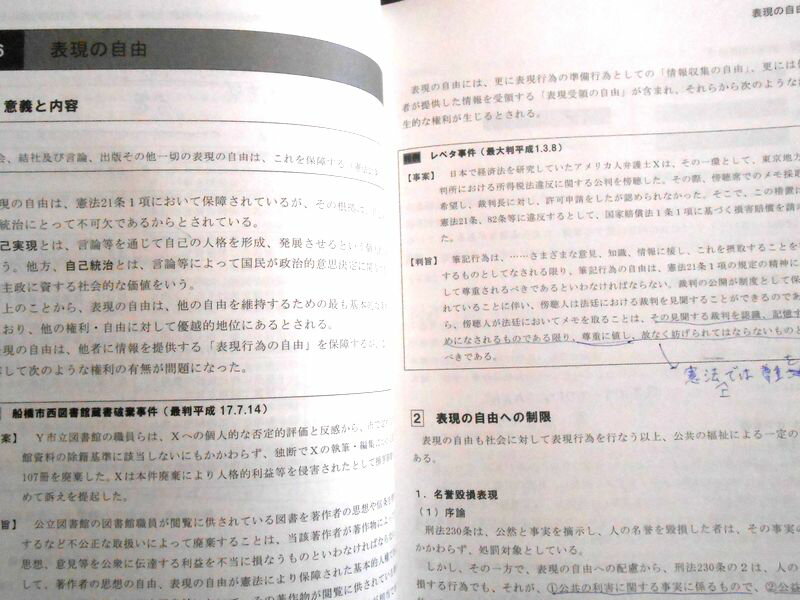 6 表現の自由
意義と内容
会、結社及び言論、出版その他一切の表現の自由は、これを保障する
現の自由は、憲法21条1項において保障されているが、その根拠は、
統治にとって不可欠であるからとされている。
己実現とは、言論等を通じて自己の人格を形成、発展させるという個人
う。他方、自己統治とは、言論等によって国民が政治的意思決定に関
主政に資する社会的な価値をいう。
上のことから、表現の自由は、他の自由を維持するための最も基本的な
おり、他の権利・自由に対して優越的地位にあるとされる。
現の自由は、他者に情報を提供する「表現行為の自由」を保障するが、
して次のような権利の有無が問題になった。
船橋市西図書館蔵書破棄事件（最判平成 17.7.14）
案】 Y市立図書館の職員らは、Xへの個人的な否定的評価と反感から、
館資料の除籍基準に該当しないにもかかわらず、独断でXの執筆・編集
107冊を廃棄した。Xは本件廃棄により人格的利益等を侵害されたとして
めて訴えを提起した。
旨】 公立図書館の図書館職員が閲覧に供されている図書を著作者の思想や信条を
するなど不公正な取扱いによって廃棄することは、当該著作者が著作物によって
思想、意見等を公衆に伝達する利益を不当に損なうものといわなければならない
して、著作者の思想の自由、表現の自由が憲法により保障された基本的人権
その著作物が閲覧に供されている
表現の自由
表現の自由には、更に表現行為の準備行為としての「情報収集の自由」、更には他
者が提供した情報を受領する「表現受領の自由」が含まれ、それらから次のような派
生的な権利が生じるとされる。
判例 レペタ事件（最大判平成1.3.8）
【事案】 日本で経済法を研究していたアメリカ人弁護士Xは、その一環として、東京地方
判所における所得税法違反に関する公判を傍聴した。その際、傍聴席でのメモ採取
希望し、裁判長に対し、許可申請をしたが認められなかった。そこで、この措置
憲法21条、82条等に違反するとして、国家賠償法1条1項に基づく損害賠償を請
た。
【判旨】 筆記行為は、……さまざまな意見、知識、情報に接し、これを摂取することを
するものとしてなされる限り、筆記行為の自由は、憲法21条1項の規定の精神に
して尊重されるべきであるといわなければならない。裁判の公開が制度として保
れていることに伴い、傍聴人は法廷における裁判を見聞することができるのであ
ら、傍聴人が法廷においてメモを取ることは、その見聞する裁判を認識、記憶す
めになされるものである限り、尊重に値し、故なく妨げられてはならないものと
べきである。
憲法では
上
2 表現の自由への制限
表現の自由も社会に対して表現行為を行なう以上、公共の福祉による一定の
ある。
1．名誉毀損表現
（1）序論
刑法230条は、公然と事実を摘示し、人の名誉を毀損した者は、その事実の
かかわらず、処罰対象としている。
しかし、その一方で、表現の自由への配慮から、刑法230条の2は、人の
損する行為でも、それが、①公共の利害に関する事実に係るもので、②公益